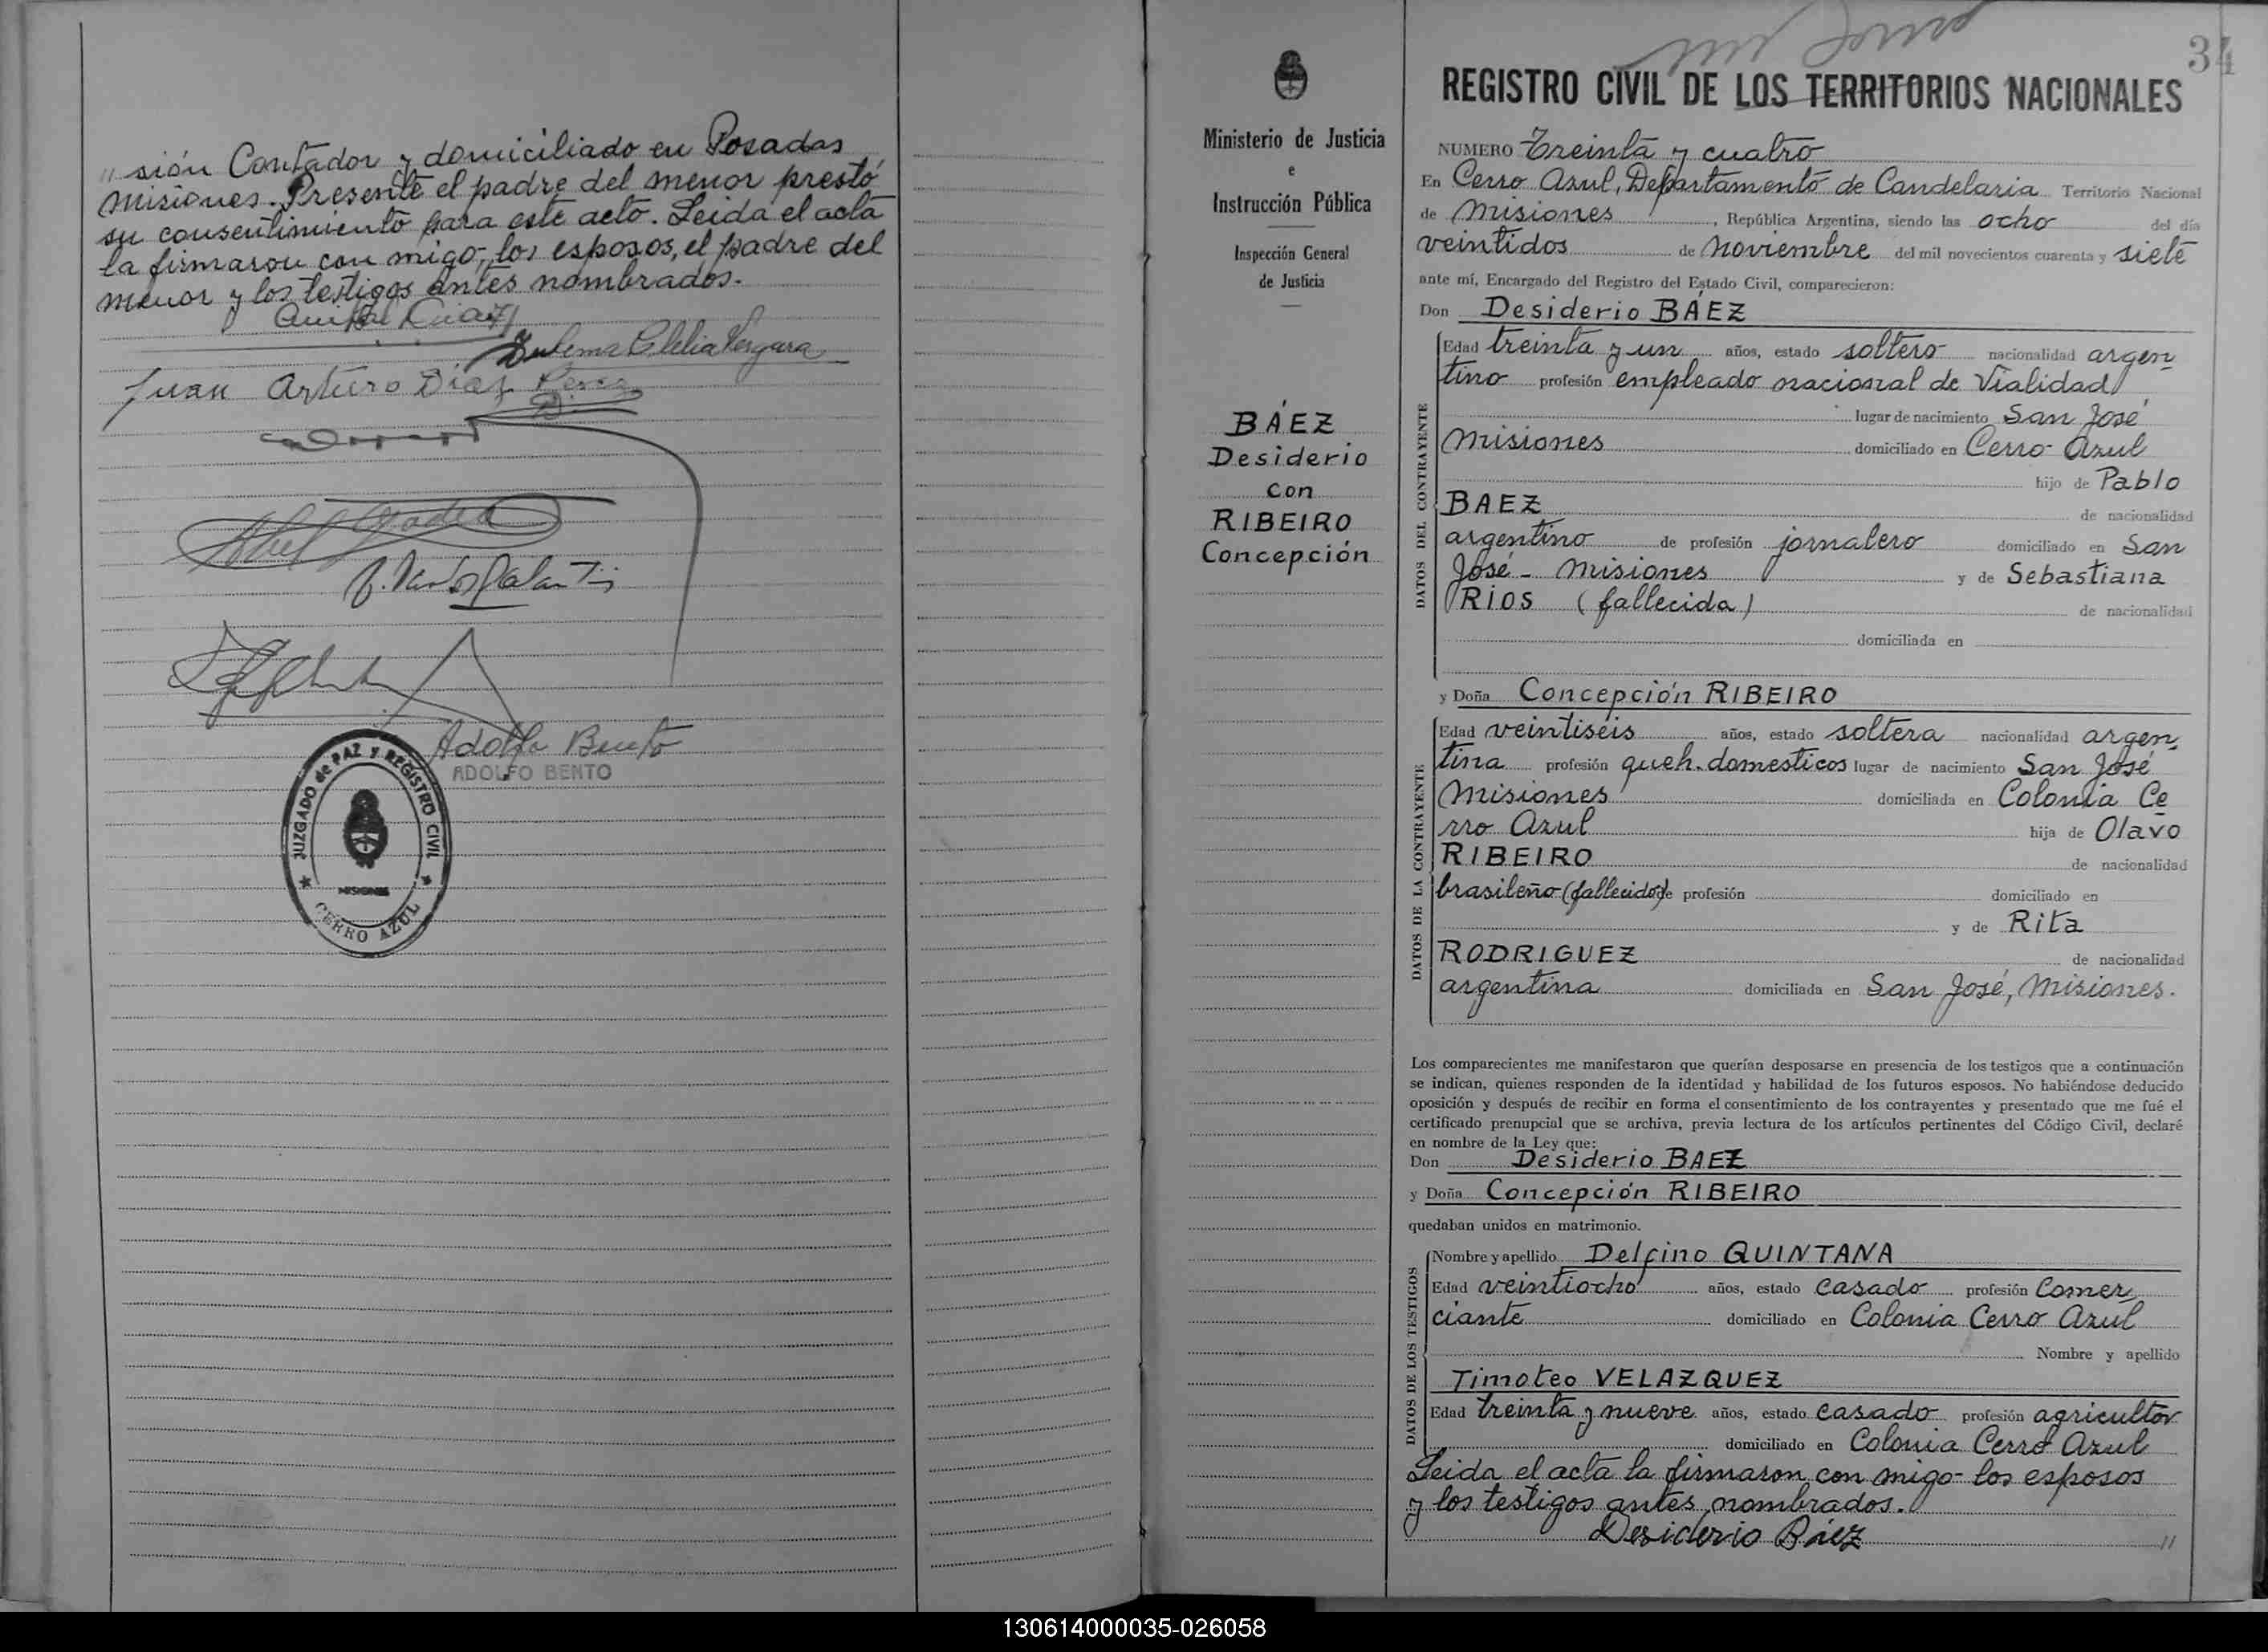 " sión Contador y domiciliado en Posadas
Misiones. Presente el padre del menor prestó
su consentimiento para este acto. Leida el acta
la firmaron con migo, los esposos, el padre del
menor y los testigos antes nombrados.
Zulema Clelia Vergara
Juan Arturo Diaz
Adolfo Bento
ADOLFO BENTO
JUZGADO de PAZ y REGISTRO CIVIL
MISIONES
CERRO AZUL
34
Ministerio de Justicia
e
Instrucción Pública
Inspección General
de Justicia
BÁEZ
Desiderio
con
RIBEIRO
Concepción
REGISTRO CIVIL DE LOS TERRITORIOS NACIONALES
NUMERO Treinta y cuatro
En Cerro Azul, Departamento de Candelaria Territorio Nacional
de Misiones, República Argentina, siendo las ocho del día
veintidos de Noviembre del mil novecientos cuarenta y siete
ante mí, Encargado del Registro del Estado Civil, comparecieron:
Don Desiderio BÁEZ
DATOS DEL CONTRAYENTE
Edad treinta y un años, estado soltero nacionalidad argen
tino profesión empleado nacional de Vialidad
lugar de nacimiento San José
Misiones domiciliado en Cerro Azul
hijo de Pablo
BAEZ de nacionalidad
argentino de profesión jornalero domiciliado en San
José - Misiones y de Sebastiana
RIOS (fallecida) de nacionalidad
domiciliada en
y Doña Concepción RIBEIRO
DATOS DE LA CONTRAYENTE
Edad veintiséis años, estado soltera nacionalidad argen
tina profesión queh. domesticos lugar de nacimiento San José
Misiones domiciliada en Colonia Ce
rro Azul hija de Olavo
RIBEIRO de nacionalidad
brasileño (fallecido) de profesión domiciliado en
y de Rita
RODRIGUEZ de nacionalidad
argentina domiciliada en San José, Misiones.
Los comparecientes me manifestaron que querían desposarse en presencia de los testigos que a continuación
se indican, quienes responden de la identidad y habilidad de los futuros esposos. No habiéndose deducido
oposición y después de recibir en forma el consentimiento de los contrayentes y presentado que me fué el
certificado prenupcial que se archiva, previa lectura de los artículos pertinentes del Código Civil, declaré
en nombre de la Ley que:
Don Desiderio BAEZ
y Doña Concepción RIBEIRO
quedaban unidos en matrimonio.
DATOS DE LOS TESTIGOS
Nombre y apellido Delfino QUINTANA
Edad veintiocho años, estado casado profesión Comer
ciante domiciliado en Colonia Cerro Azul
Nombre y apellido
Timoteo VELAZQUEZ
Edad treinta y nueve años, estado casado profesión agricultor
domiciliado en Colonia Cerro Azul
Leida el acta la firmaron con migo - los esposos
y los testigos antes nombrados.
Desiderio Báez
"
130614000035-026058